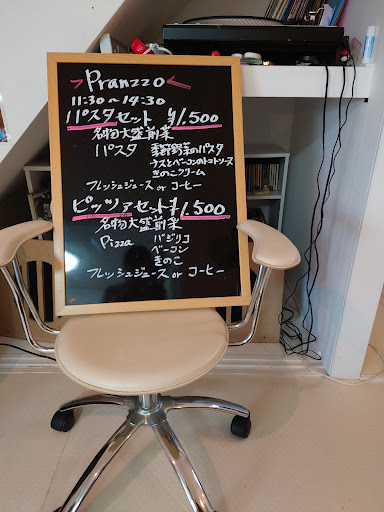 Pranzzo
11:30~14:30
パスタセット ¥1,500
名物大盛前菜
パスタ 季節野菜のパスタ
ナスとベーコンのトマトソース
きのこクリーム
フレッシュジュース or コーヒー
ピッツァセット ¥1,500
名物大盛前菜
Pizza バジリコ
ベーコン
きのこ
フレッシュジュース or コーヒー